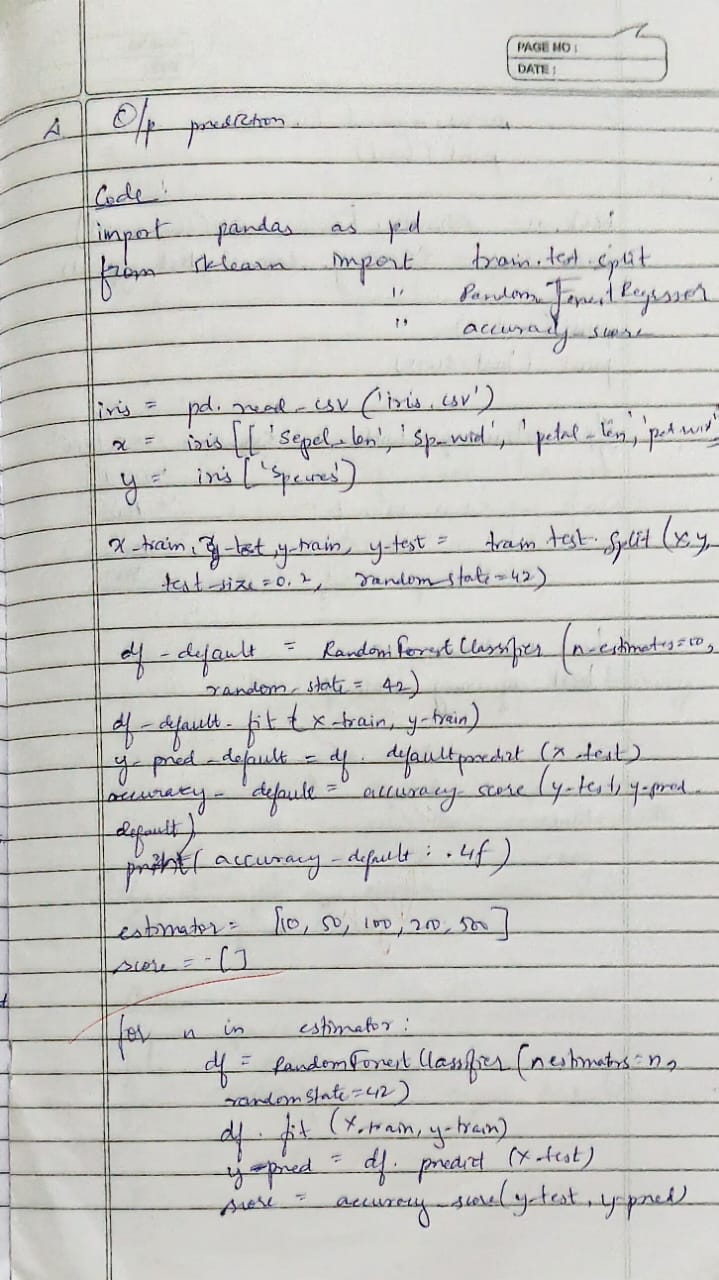 PAGE NO:
DATE:
A O/p prediction.
Code:
import pandas as pd
from sklearn import train.test.split
" Random Forest Regressor
" accuracy score
iris = pd. read-csv ('iris.csv')
x = iris [[ 'Sepel-len', 'Sp-wid', 'petal-len', 'pet-wid'
y = iris ['Species']
x-train, x-test, y-train, y-test = train test. Split (x,y,
test-size=0.2, random state=42)
df-default = Random Forest Classifier (n-estimators=10,
random-state = 42)
df-default-fit ( x-train, y-train)
y-pred-default = df. default predict (x-test)
accuracy-default = accuracy-score (y-test, y-pred-
default)
print( accuracy-default : .4f )
estimator = [10, 50, 100, 200, 500]
score = []
for n in estimator:
df = Random Forest Classifier (n estimators=n,
random state=42)
df. fit (x-train, y-train)
y-pred = df. predict (x-test)
score = accuracy-score(y-test, y-pred)